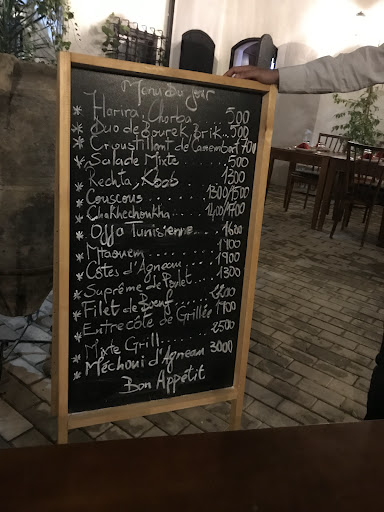 Menu Du jour
* Harira, Chorba 500
* Duo de bourek, Brik.. 500
* Croustillant de Camembert 700
* Salade Mixte...... 500
* Rechta, Ksob 1300
* Couscous....... 1300/1500
* Chakhechoukha.... 1400/1700
* Ojja Tunisienne... 1600
* Mtaouem......... 1400
* Côtes d'Agneau.... 1900
* Suprême de Poulet 1300
* Filet de Bœuf.....
* Entrecôte de Grillée 1700
* Mixte Grill..... 2500
* Méchoui d'Agneau 3000
Bon Appétit